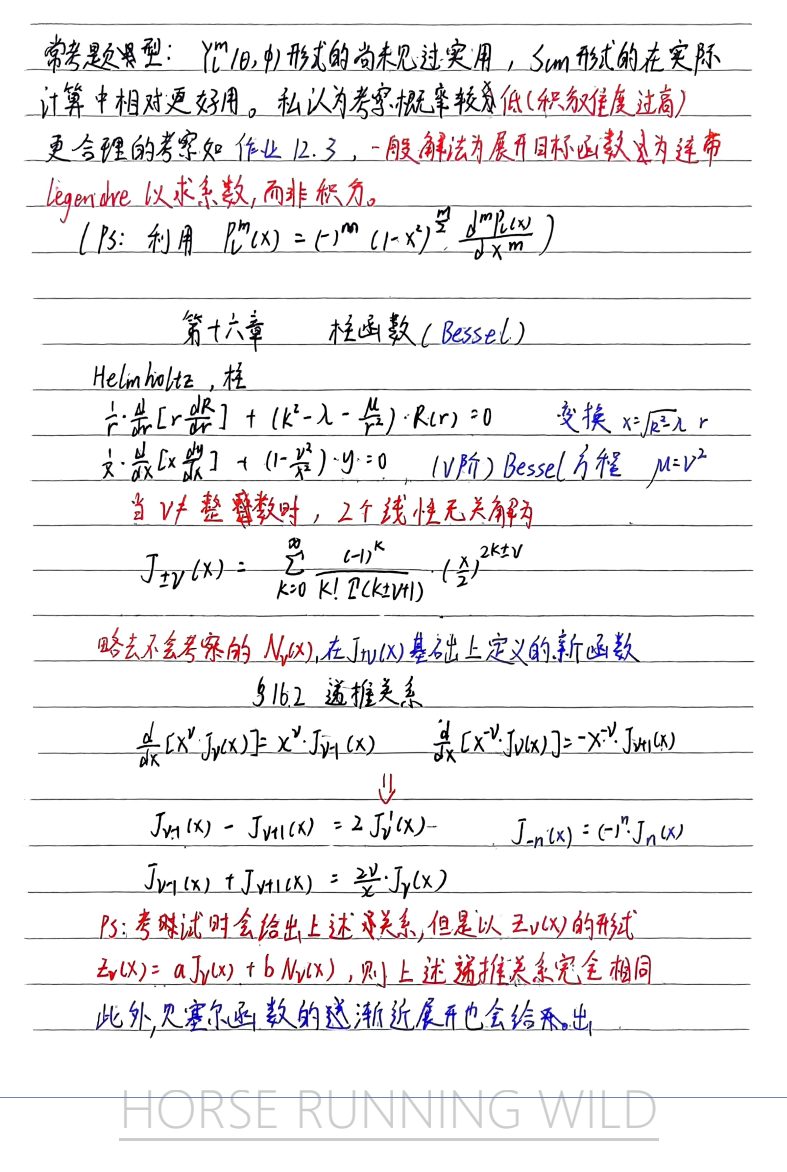 常考题型：Yₗᵐ(θ,φ)形式的尚未见过实用，Slm形式的在实际
计算中相对更好用。私认为考察概率较低(积分难度过高)
更合理的考察如 作业12.3，一般解法为展开目标函数为连带
Legendre 以求系数,而非积分。
(PS: 利用 Pₗᵐ(x) = (-)ᵐ (1-x²)^(m/2) dᵐPₗ(x)/dxᵐ )
第十六章 柱函数(Bessel)
Helmholtz , 柱
1/r · d/dr [r dR/dr] + (k²-λ-μ/r²)·R(r)=0 变换 x=√(k²-λ) r
1/x · d/dx [x dy/dx] + (1-ν²/x²)·y=0, (ν阶) Bessel方程 μ=ν²
当 ν≠ 整数时，2个线性无关解为
J±ν(x) = ∑_{k=0}^{∞} (-1)ᵏ / (k! Γ(k±ν+1)) · (x/2)^{2k±ν}
略去不会考察的 Nν(x),在J+ν(x)基础上定义的新函数
§16.2 递推关系
d/dx [x^ν·Jν(x)]= x^ν·Jν-1(x) d/dx [x^-ν·Jν(x)]=-x^-ν·Jν+1(x)
⇓
Jν-1(x) - Jν+1(x) = 2 Jν'(x) J-n(x) = (-1)ⁿ·Jn(x)
Jν-1(x) + Jν+1(x) = 2ν/x·Jν(x)
PS:考试时会给出上述关系,但是以 Zν(x)的形式
Zν(x)= a Jν(x) + b Nν(x) , 则上述递推关系完全相同
此外,贝塞尔函数的渐近展开也会给出
HORSE RUNNING WILD